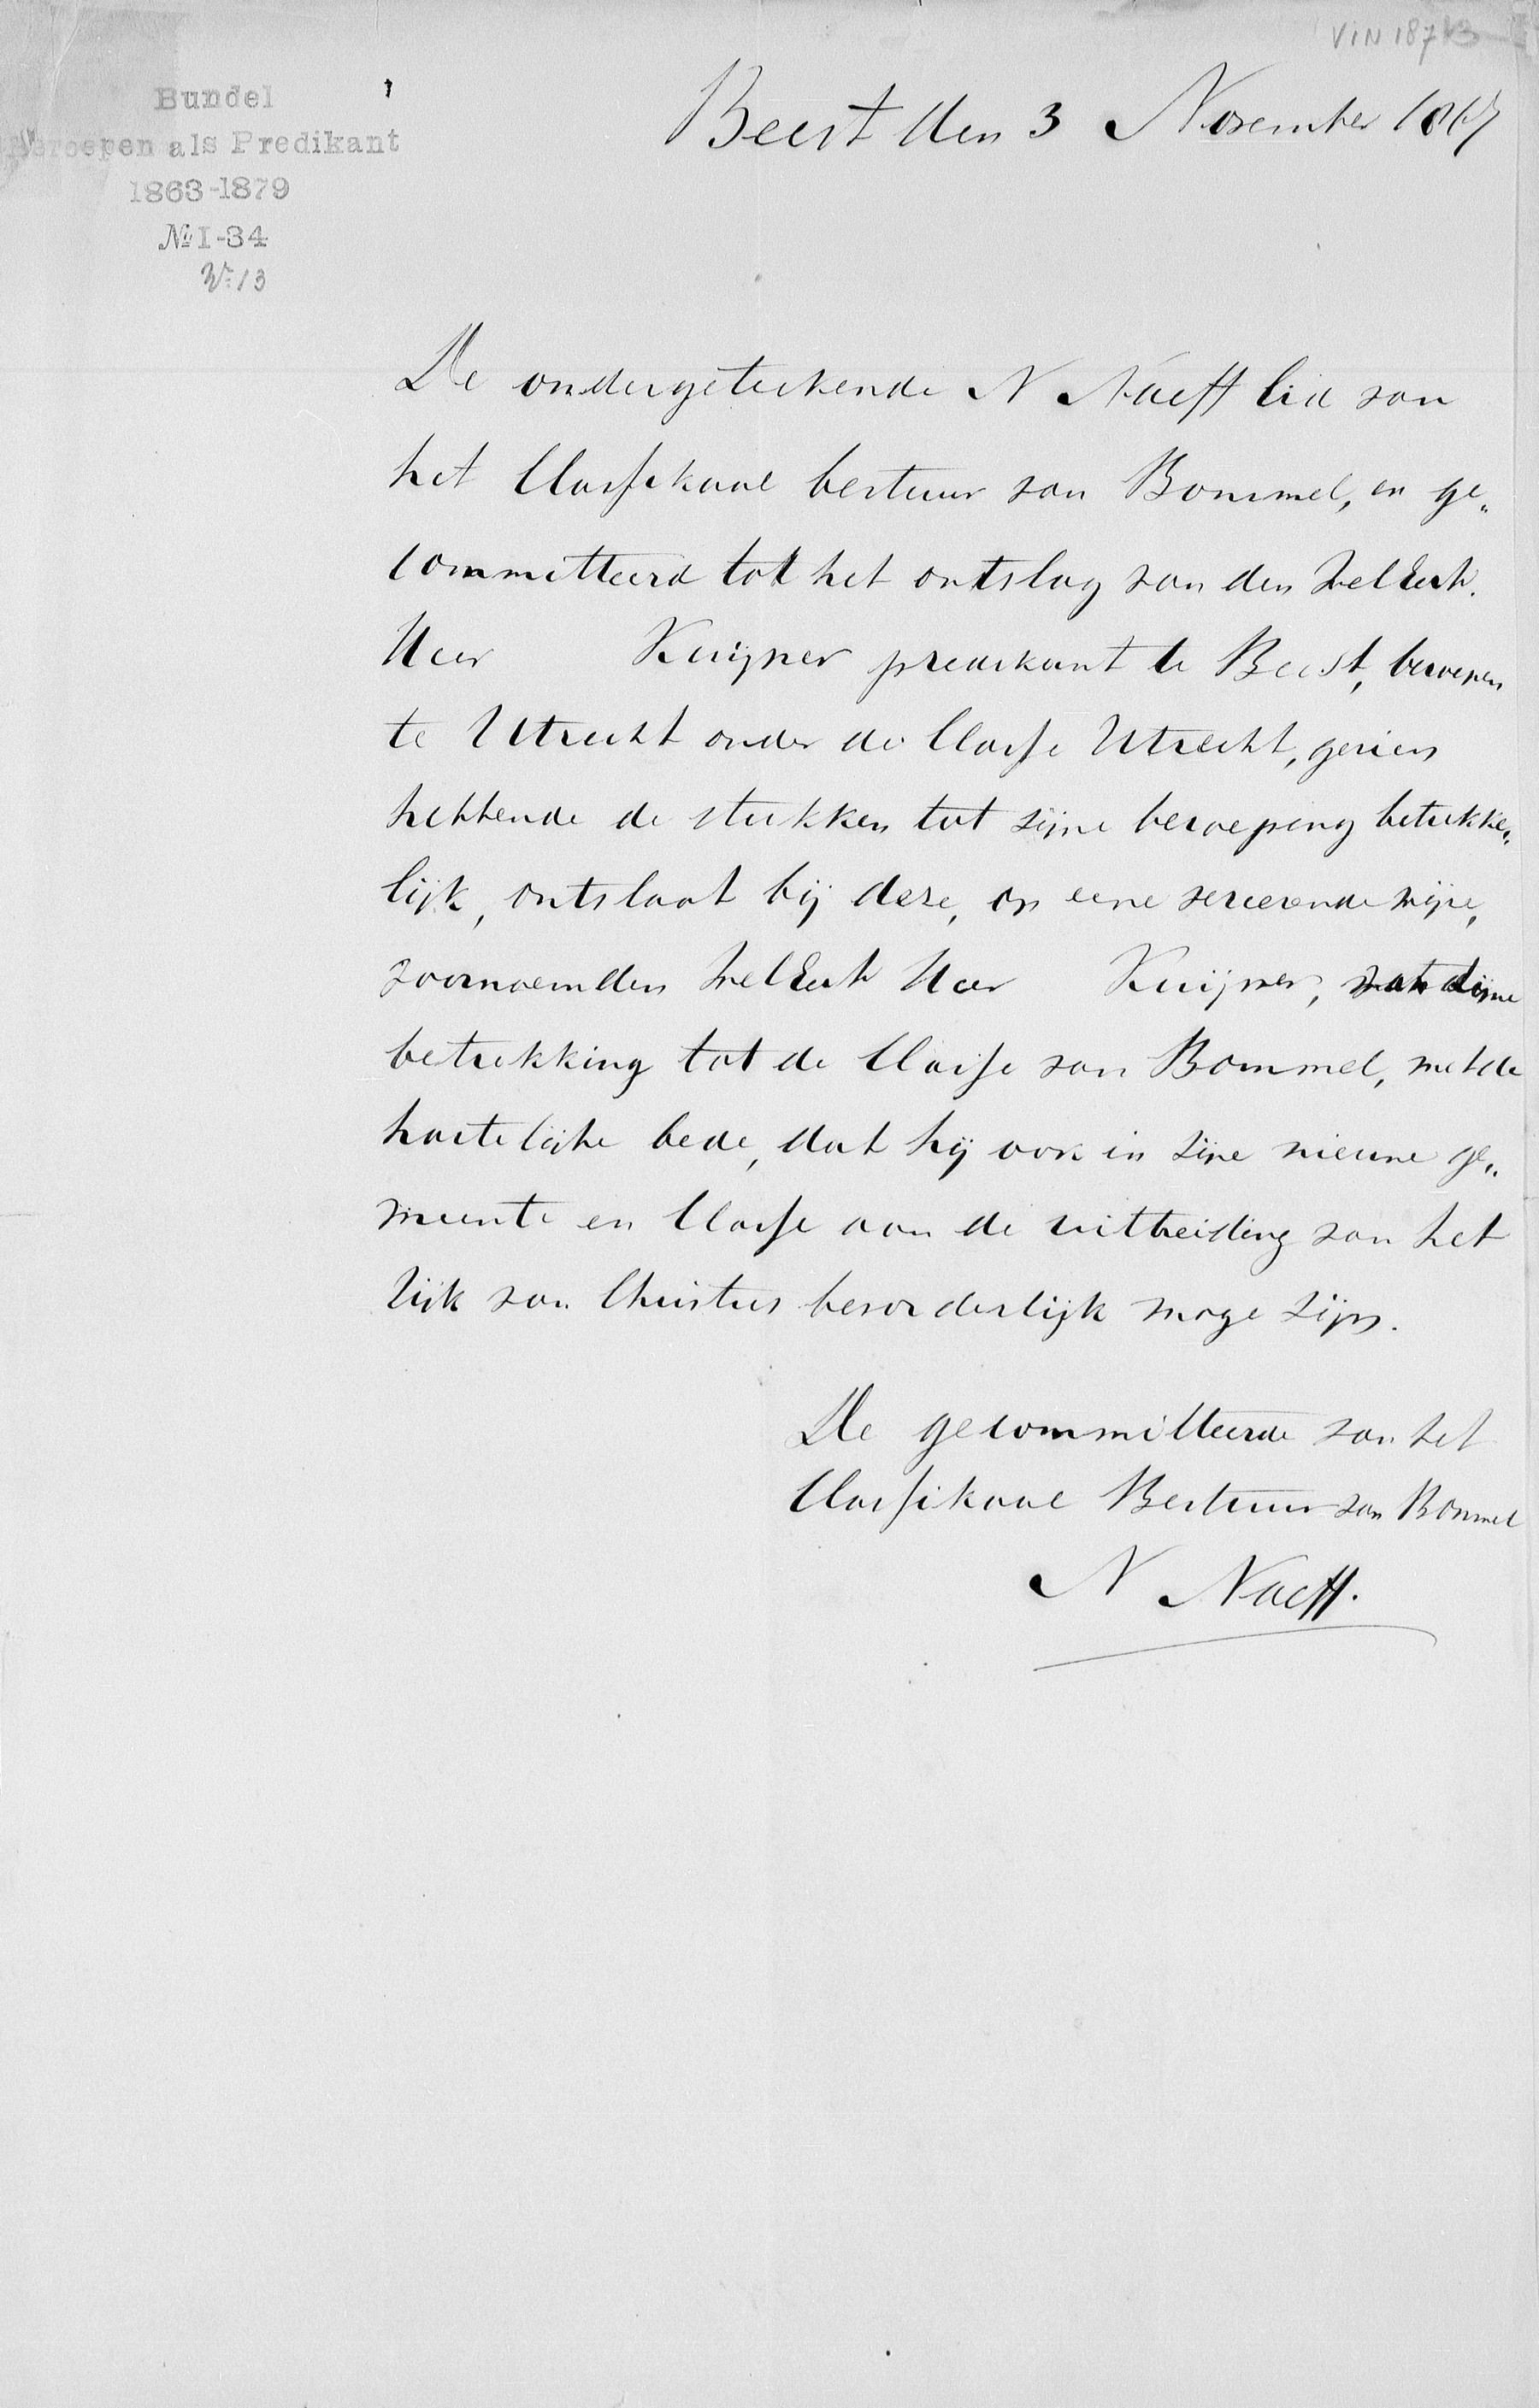 VIN 18713
Bundel
Beroepen als Predikant
1863-1879
№ I-34
Nr. 13
Beest den 3 November 1867
De ondergeteekende N Naeff lid van
het Classikaal bestuur van Bommel, en ge„
committeerd tot het ontslag van den WelEerw.
Heer Kuijper predikant te Beest, beroepen
te Utrecht onder de Classe Utrecht, gezien
hebbende de stukken tot zijne beroeping betrekke„
lijk, ontslaat bij deze, op eene vereerende wijze,
voornoemden WelEerw Heer Kuijper, van zijne
betrekking tot de Classe van Bommel, met de
hartelijke bede, dat hij ook in zijne nieuwe ge„
meente en Classe aan de uitbreiding van het
rijk van Christus bevorderlijk moge zijn.
De gecommitteerde van het
Classikaal Bestuur van Bommel
N Naeff.